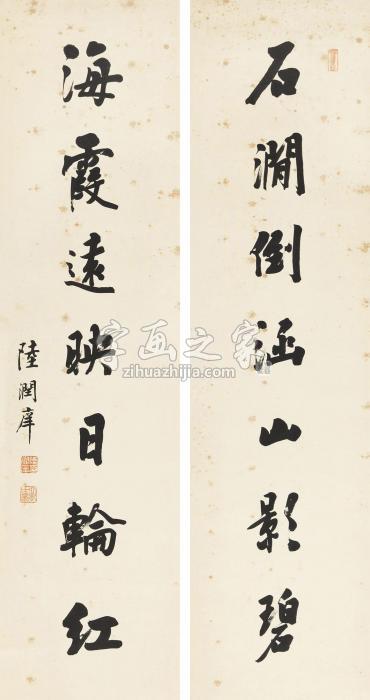 石澗倒涵山影碧
海霞遠映日輪红
陸潤庠
字画之家
zihuazhijia.com